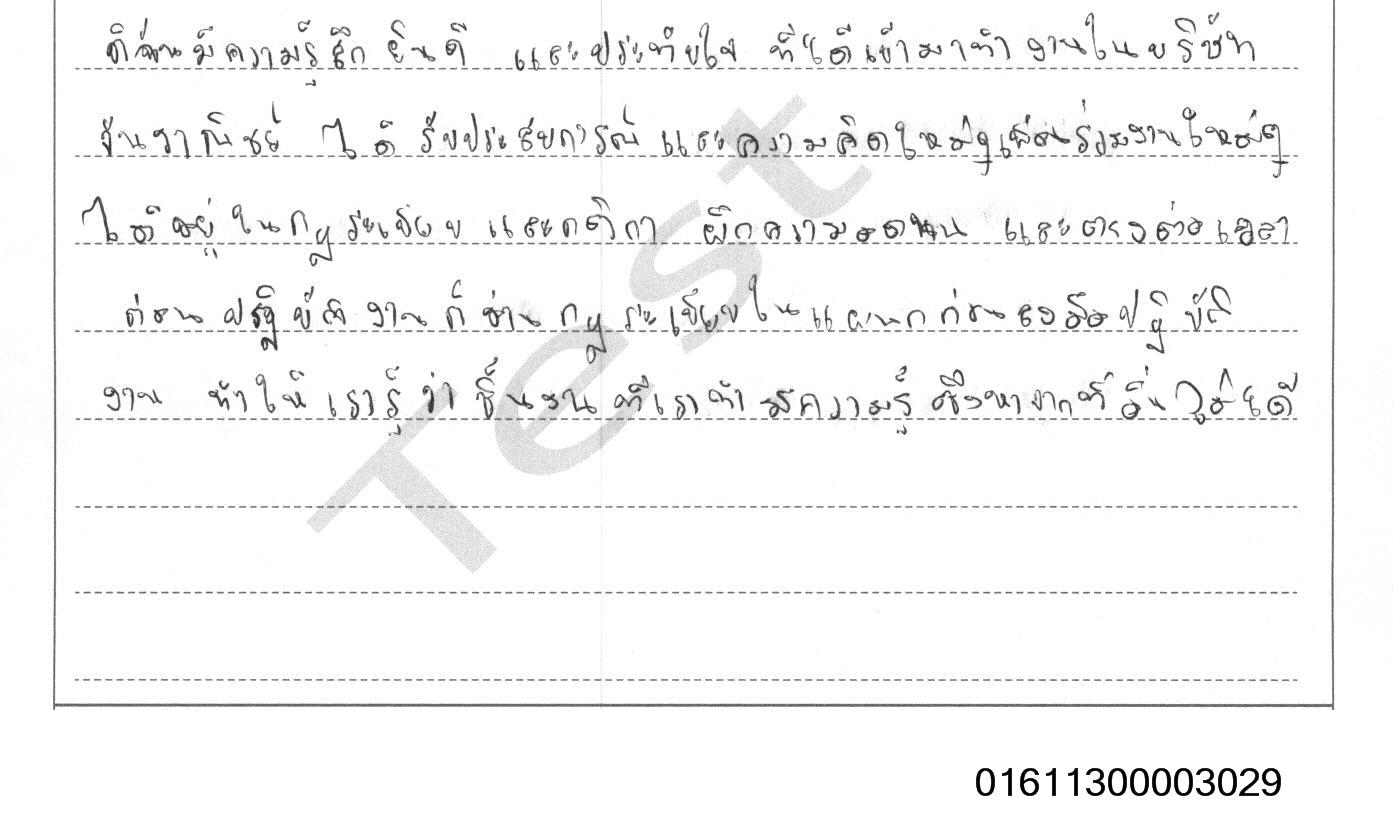 ดิฉันมีความรู้สึกยินดี และประทับใจ ที่ได้เข้ามาทำงานในบริษัท
ได้รับประสบการณ์และความคิดใหม่ๆเพื่อนร่วมงานใหม่ๆ
ได้อยู่ในกฎระเบียบและกติกา ฝึกความอดทน และตรงต่อเวลา
ก่อนปฏิบัติงานก็อ่านกฎระเบียบในแผนกก่อนลงมือปฏิบัติ
งาน ทำให้เรารู้ว่าชิ้นงานที่เราทำมีความรู้ ซึ่งหาจากที่อื่นไม่ได้
Test
01611300003029